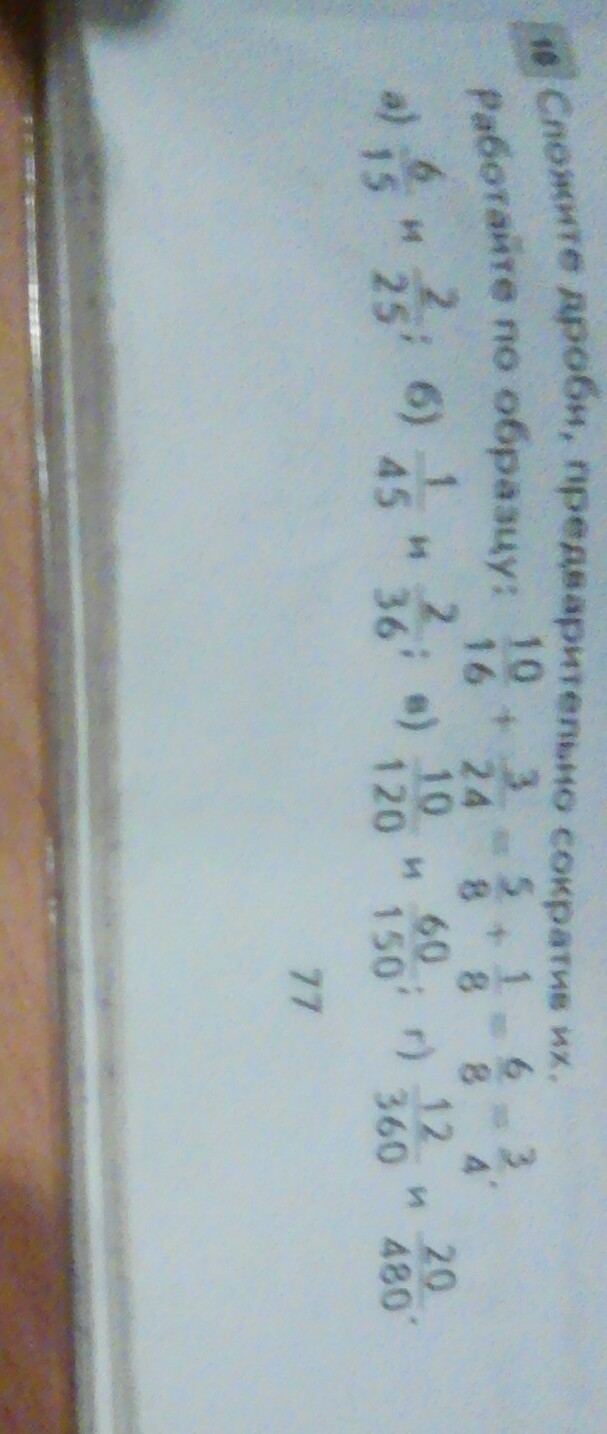 10 Сложите дроби, предварительно сократив их.
Работайте по образцу: 10/16 + 3/24 = 5/8 + 1/8 = 6/8 = 3/4.
а) 6/15 и 2/25; б) 1/45 и 2/36; в) 10/120 и 60/150; г) 12/360 и 20/480.
77